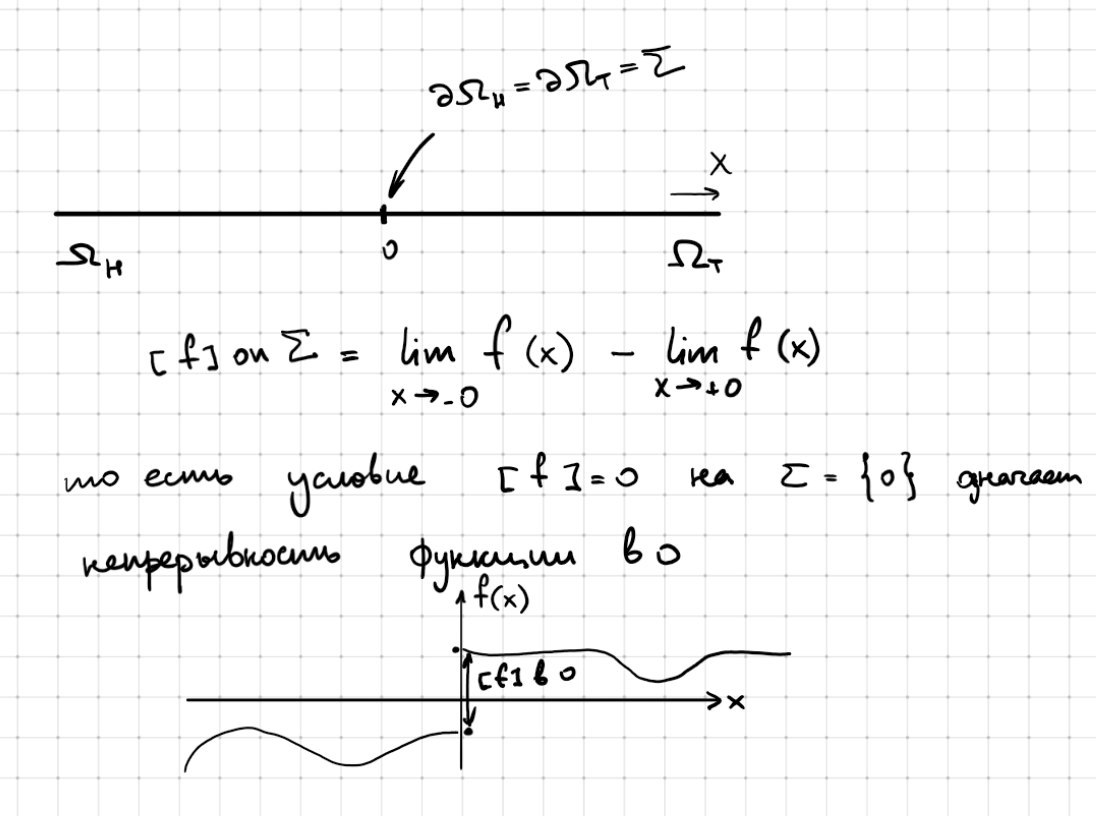 ∂Ω_H = ∂Ω_T = Σ
x
Ω_H 0 Ω_T
[f] on Σ = lim_{x→-0} f(x) - lim_{x→+0} f(x)
то есть условие [f]=0 на Σ = {0} означает
непрерывность функции в 0
f(x)
[f] в 0
x